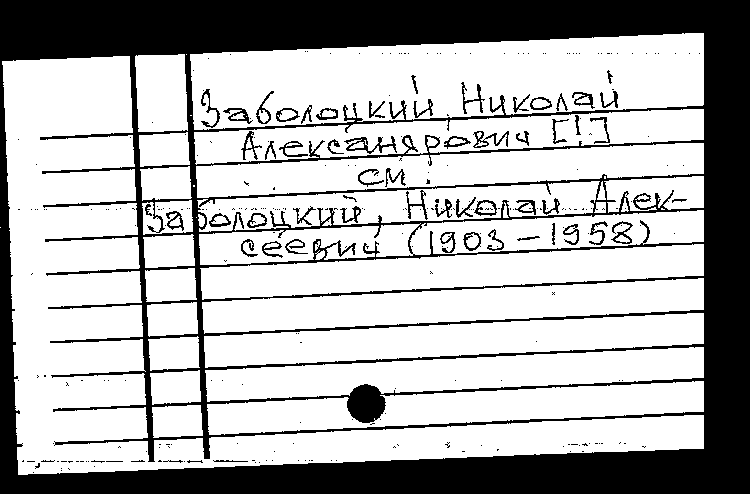 Заболоцкий, Николай
Александрович [!]
см.:
Заболоцкий, Николай Алек-
сеевич (1903-1958)